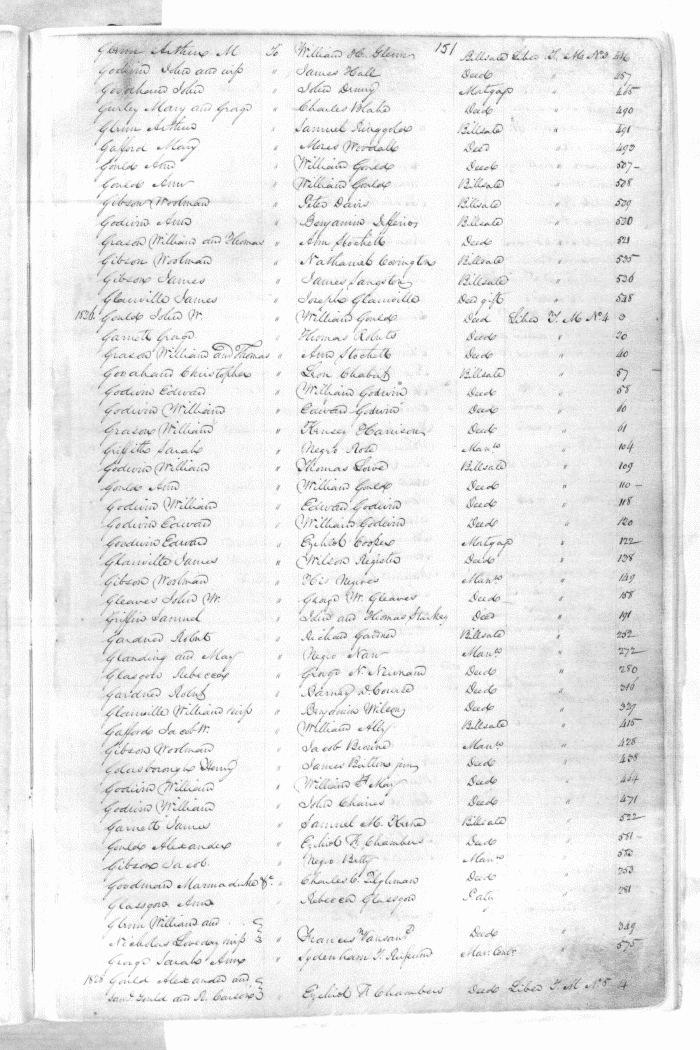 151
Glenn Arthur M To William H. Glenn Billsale Liber T. M. No 3 416
Godwin John and wife " James Hall Deed " 457
Goodhand John " John Denny Mortgage " 465
Gurley Mary and George " Charles Blake Deed " 490
Glenn Arthur " Samuel Ringgold Billsale " 491
Gafford Mary " Moses Woodall Deed " 493
Gould Ann " William Gould Deed " 507
Gould Ann " William Gould Billsale " 508
Gibson Woolman " Peter Davis Billsale " 509
Godwin Ann " Benjamin Billsale " 520
Grason William and Thomas " Ann Stockett Deed " 521
Gibson Woolman " Nathaniel Covington Billsale " 535
Gibson James " James Langston Billsale " 536
Glanville James " Joseph Glanville Deed gift " 548
1826 Gould John W. " William Gould Deed Liber T. M. No 4 3
Garnett George " Thomas Roberts Deed " 20
Grason William and Thomas " Ann Stockett Deed " 40
Goodhand Christopher " Leon Chabert Billsale " 57
Godwin Edward " William Godwin Deed " 58
Godwin William " Edward Godwin Deed " 60
Grason William " Kensey Harrison Deed " 61
Griffith Sarah " Negro Rose Manu " 104
Godwin William " Thomas Lowe Billsale " 109
Gould Ann " William Gould Deed " 110
Godwin William " Edward Godwin Deed " 118
Godwin Edward " William Godwin Deed " 120
Goodwin Edward " Ezekiel Cooper Mortgage " 122
Glanville James " Wilson Register Deed " 138
Gibson Woolman " His Negroes Manu " 149
Gleaves John W. " George W. Gleaves Deed " 158
Griffin Samuel " John and Thomas Starkey Deed " 191
Gardner Robert " Richard Gardner Billsale " 252
Glanding and May " Negro Nan Manu " 272
Glasgow Rebecca " George N. Newnam Deed " 280
Gardner Robert " Barney D Course Deed " 316
Glanville William wife " Benjamin Wilson Deed " 327
Gafford Jacob W. " William Ally Billsale " 415
Gibson Woolman " Jacob Browne Manu " 428
Goldsborough Henry " James Britton jun Deed " 438
Godwin William " William H May Deed " 464
Godwin William " John Chaires Deed " 471
Garnett James " Samuel M. Keene Billsale " 522
Gould Alexander " Ezekiel F. Chambers Deed " 551
Gibson Jacob " Negro Betty Manu " 552
Goodman Marmaduke &c " Charles C. Tilghman Deed " 253
Glasgow Ann " Rebecca Glasgow " 281
Glenn William and
Nicholas Loveday wife " Francis Vansant Deed " 349
George Sarah Ann " Sydenham T. Mar. Cont " 575
1828 Gould Alexander and
Saml. Gould and R. Carson " Ezekiel F. Chambers Deed Liber T. M. No 5 4